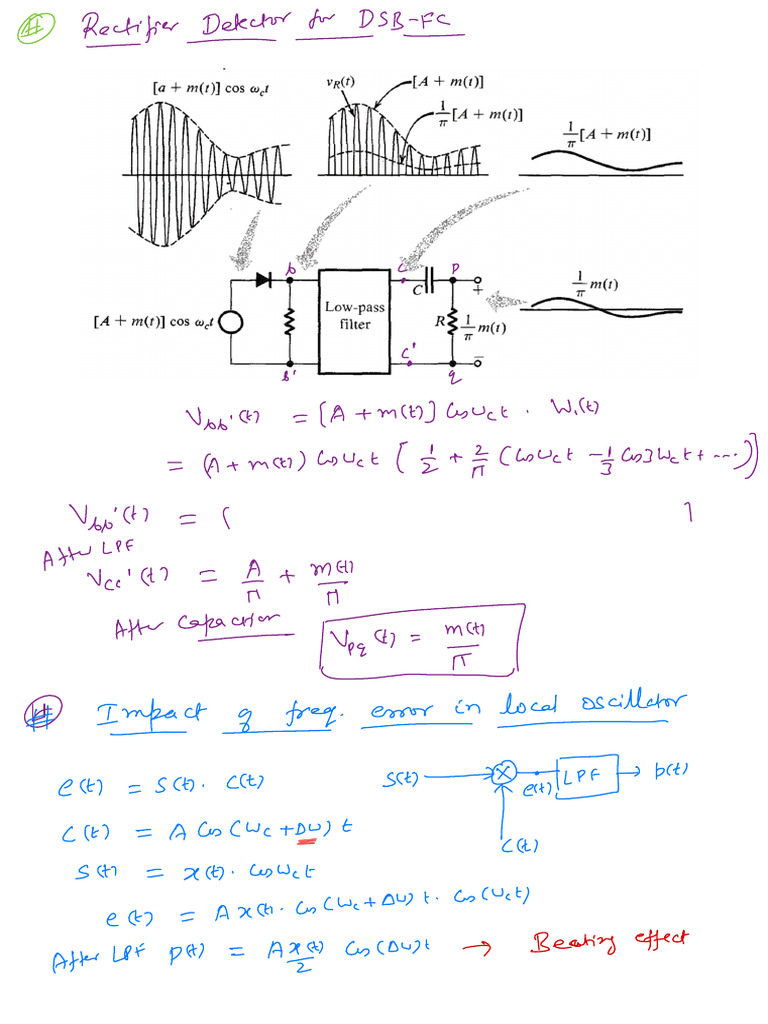 # Rectifier Detector for DSB-FC
[a + m(t)] cos ω_c t
v_R(t)
[A + m(t)]
1/π [A + m(t)]
1/π [A + m(t)]
b
C
C
P
+
1/π m(t)
[A + m(t)] cos ω_c t
Low-pass
filter
R
1/π m(t)
b'
C'
q
−
V_bb'(t) = [A + m(t)] Cos ω_c t . W_1(t)
= (A + m(t)) Cos ω_c t [ 1/2 + 2/π (Cos ω_c t − 1/3 Cos 3ω_c t + ....)]
V_bb'(t) = [ ]
After LPF
V_cc'(t) = A/π + m(t)/π
After Capacitor
V_pq(t) = m(t)/π
# Impact of freq. error in local oscillator
e(t) = S(t). C(t)
S(t) × e(t) LPF → p(t)
C(t) = A Cos(ω_c + Δω) t
C(t)
S(t) = x(t). Cos ω_c t
e(t) = A x(t). Cos(ω_c + Δω) t. Cos(ω_c t)
After LPF p(t) = A x(t)/2 Cos(Δω) t → Beating effect